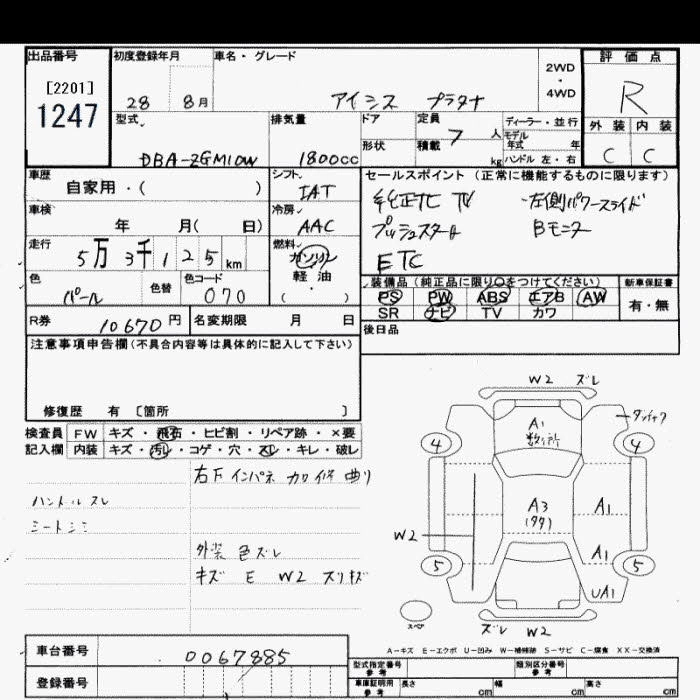 出品番号 初度登録年月 車名・グレード 評価点
[2201]
1247
28 8月 アイシス プラタナ 2WD・4WD R
型式 排気量 ドア 定員 ディーラー・並行 外装 内装
形状 積載 7人 モデル年式 年
DBA-ZGM10W 1800cc kg ハンドル 左・右 C C
車歴 シフト セールスポイント (正常に機能するものに限ります)
自家用・( ) IAT 純正TC TV 左側パワースライド
車検 冷房 プッシュスタート Bモニター
年 月( 日) AAC ETC
走行 燃料
5万3千125km ガソリン
色 色替 色コード 軽油 装備品 (純正品に限り○をつけてください) 新車保証書
パール 070 ・( ) PS PW ABS エアB AW 有・無
SR ナビ TV カワ
R券 10670円 名変期限 月 日 後日品
注意事項申告欄(不具合内容等は具体的に記入して下さい)
修復歴 有 〔箇所 〕
検査員 FW キズ・飛石・ヒビ割・リペア跡・×要
記入欄 内装 キズ・汚レ・コゲ・穴・スレ・キレ・破レ
右下インパネ カワ修 曲り
ハンドルスレ
シートシミ
外装 色ズレ
キズ E W2 スリキズ
W2 ズレ
A1
数ヶ所
4 4
A3
A1
W2
A1
5 5
UA1
スペア
ズレ W2
A-キズ E-エクボ U-凹み W-補修跡 S-サビ C-腐食 XX-交換済
車台番号 0067885
登録番号
型式指定番号 参考 類別区分番号 参考
車庫証明用 参考 長さ cm 幅 cm 高さ cm